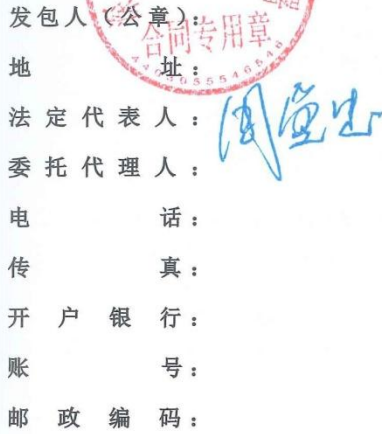 发包人（公章）：
合同专用章
地 址：
法定代表人：
委托代理人：
电 话：
传 真：
开户银行：
账 号：
邮政编码：